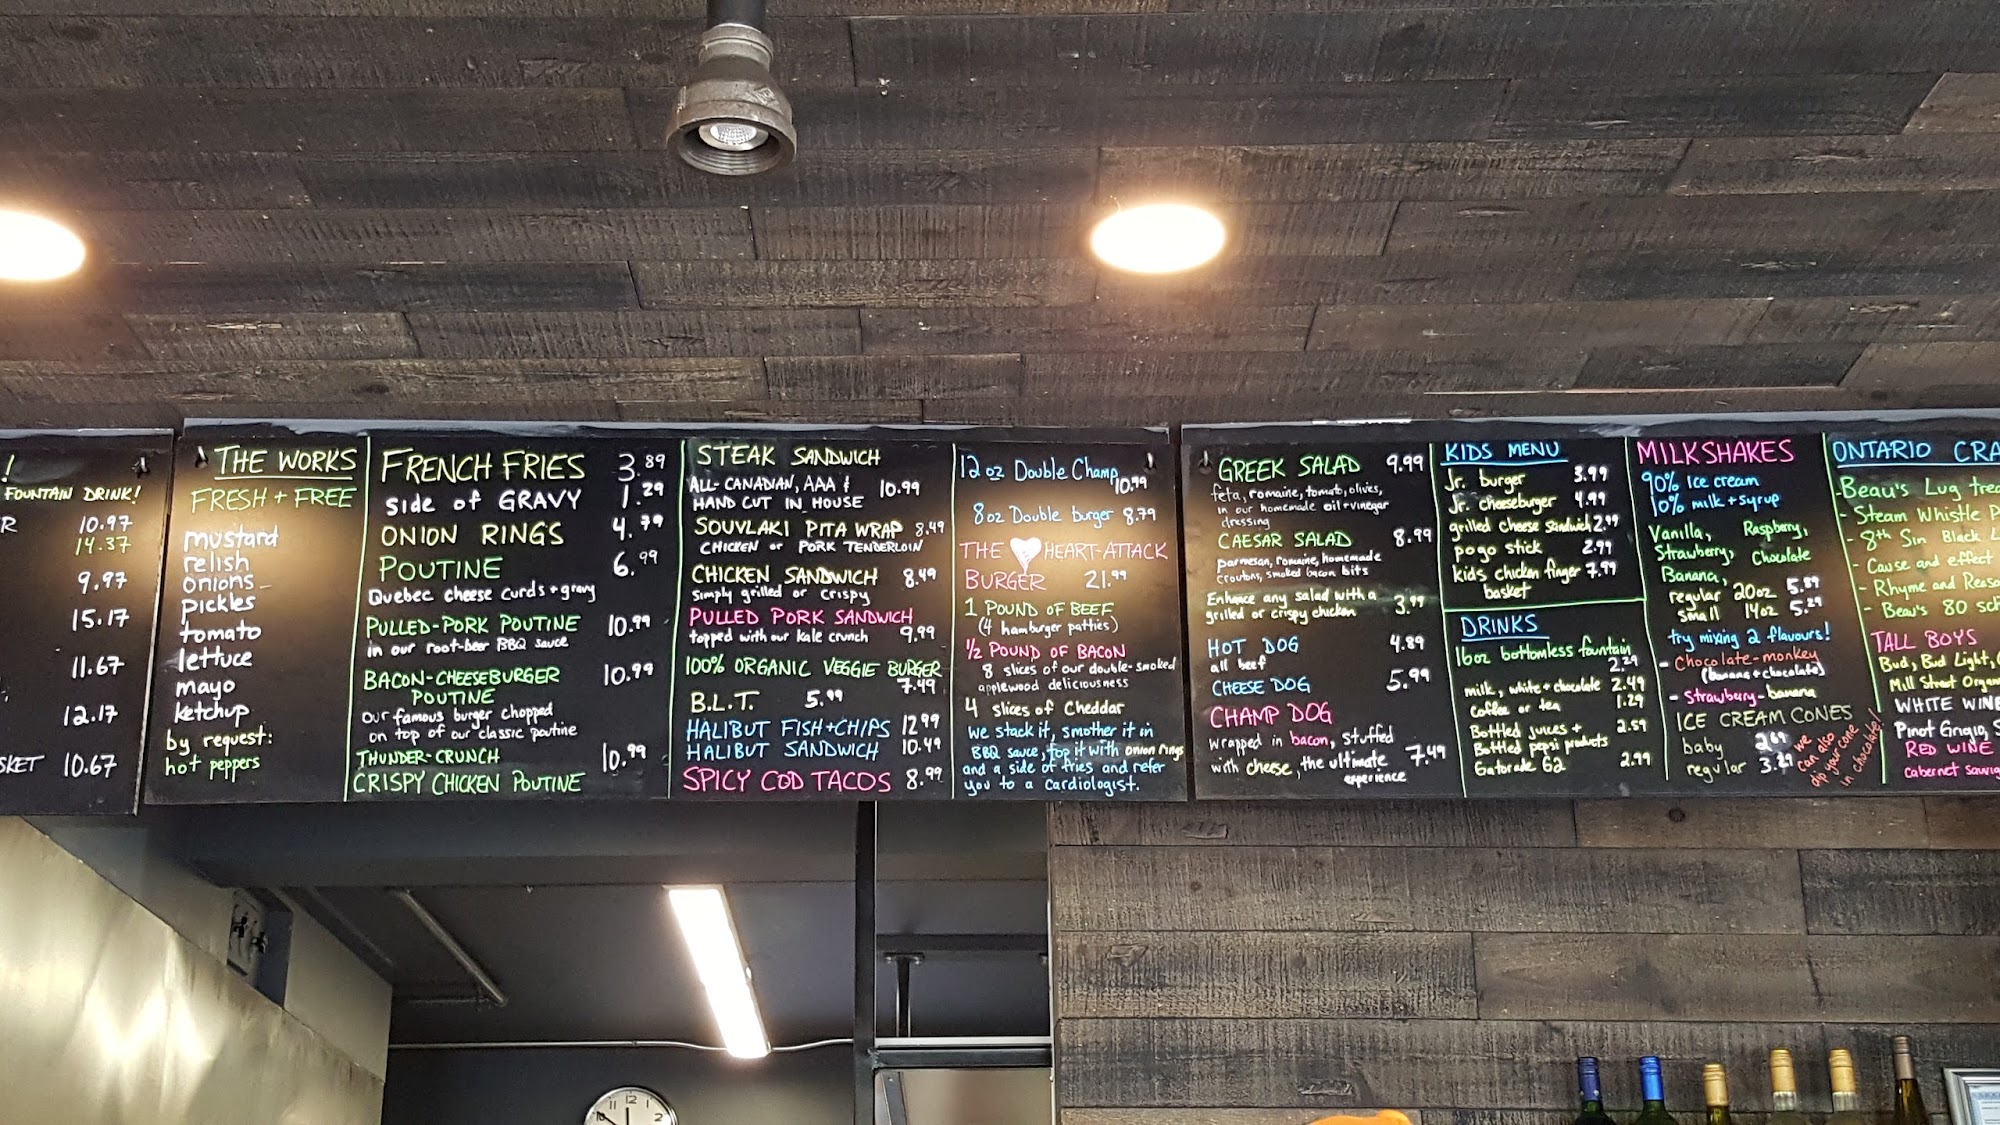 !
FOUNTAIN DRINK!
R 10.97
14.37
9.97
15.17
11.67
12.17
SKET 10.67
THE WORKS
FRESH + FREE
mustard
relish
onions
pickles
tomato
lettuce
mayo
ketchup
by request:
hot peppers
FRENCH FRIES 3.89
Side of GRAVY 1.29
ONION RINGS 4.79
POUTINE 6.99
Quebec cheese curds + gravy
PULLED-PORK POUTINE 10.99
in our root-beer BBQ sauce
BACON-CHEESEBURGER 10.99
POUTINE
our famous burger chopped
on top of our classic poutine
THUNDER-CRUNCH 10.99
CRISPY CHICKEN POUTINE
STEAK SANDWICH
ALL-CANADIAN, AAA & 10.99
HAND CUT IN HOUSE
SOUVLAKI PITA WRAP 8.49
CHICKEN or PORK TENDERLOIN
CHICKEN SANDWICH 8.49
Simply grilled or crispy
PULLED PORK SANDWICH
topped with our kale crunch 9.99
100% ORGANIC VEGGIE BURGER
7.49
B.L.T. 5.99
HALIBUT FISH+CHIPS 12.99
HALIBUT SANDWICH 10.49
SPICY COD TACOS 8.99
12 oz Double Champ
10.99
8oz Double burger 8.79
THE HEART-ATTACK
BURGER 21.99
1 POUND OF BEEF
(4 hamburger patties)
1/2 POUND OF BACON
8 slices of our double-smoked
applewood deliciousness
4 slices of Cheddar
We stack it, smother it in
BBQ sauce, top it with onion rings
and a side of fries and refer
you to a cardiologist.
GREEK SALAD 9.99
feta, romaine, tomato, olives,
in our homemade oil+vinegar
dressing
CAESAR SALAD 8.99
parmesan, romaine, homemade
croutons, smoked bacon bits
Enhance any salad with a
grilled or crispy chicken 3.99
HOT DOG 4.89
all beef
CHEESE DOG 5.99
CHAMP DOG
wrapped in bacon, stuffed
with cheese, the ultimate 7.49
experience
KIDS MENU
Jr. burger 3.99
Jr. cheeseburger 4.99
grilled cheese sandwich 2.99
pogo stick 2.99
kids chicken finger 7.99
basket
DRINKS
16oz bottomless fountain
2.29
milk, white + chocolate 2.49
Coffee or tea 1.29
Bottled juices + 2.59
Bottled pepsi products
Gatorade G2 2.99
MILKSHAKES
90% Ice cream
10% milk + syrup
Vanilla, Raspberry,
Strawberry, Chocolate
Banana,
regular 20oz 5.89
small 14oz 5.29
try mixing 2 flavours!
- Chocolate-monkey
(banana + chocolate)
- Strawberry-banana
ICE CREAM CONES
baby 2.69
regular 3.29
we
can also
dip your cone
in chocolate!
ONTARIO CRA
- Beau's Lug trea
- Steam Whistle P
- 8th Sin Black L
- Cause and effect
- Rhyme and Reaso
- Beau's 80 sch
TALL BOYS
Bud, Bud Light,
Mill Street Organ
WHITE WINE
Pinot Grigio, S
RED WINE
Cabernet Sauvig
11 12 1
10 2